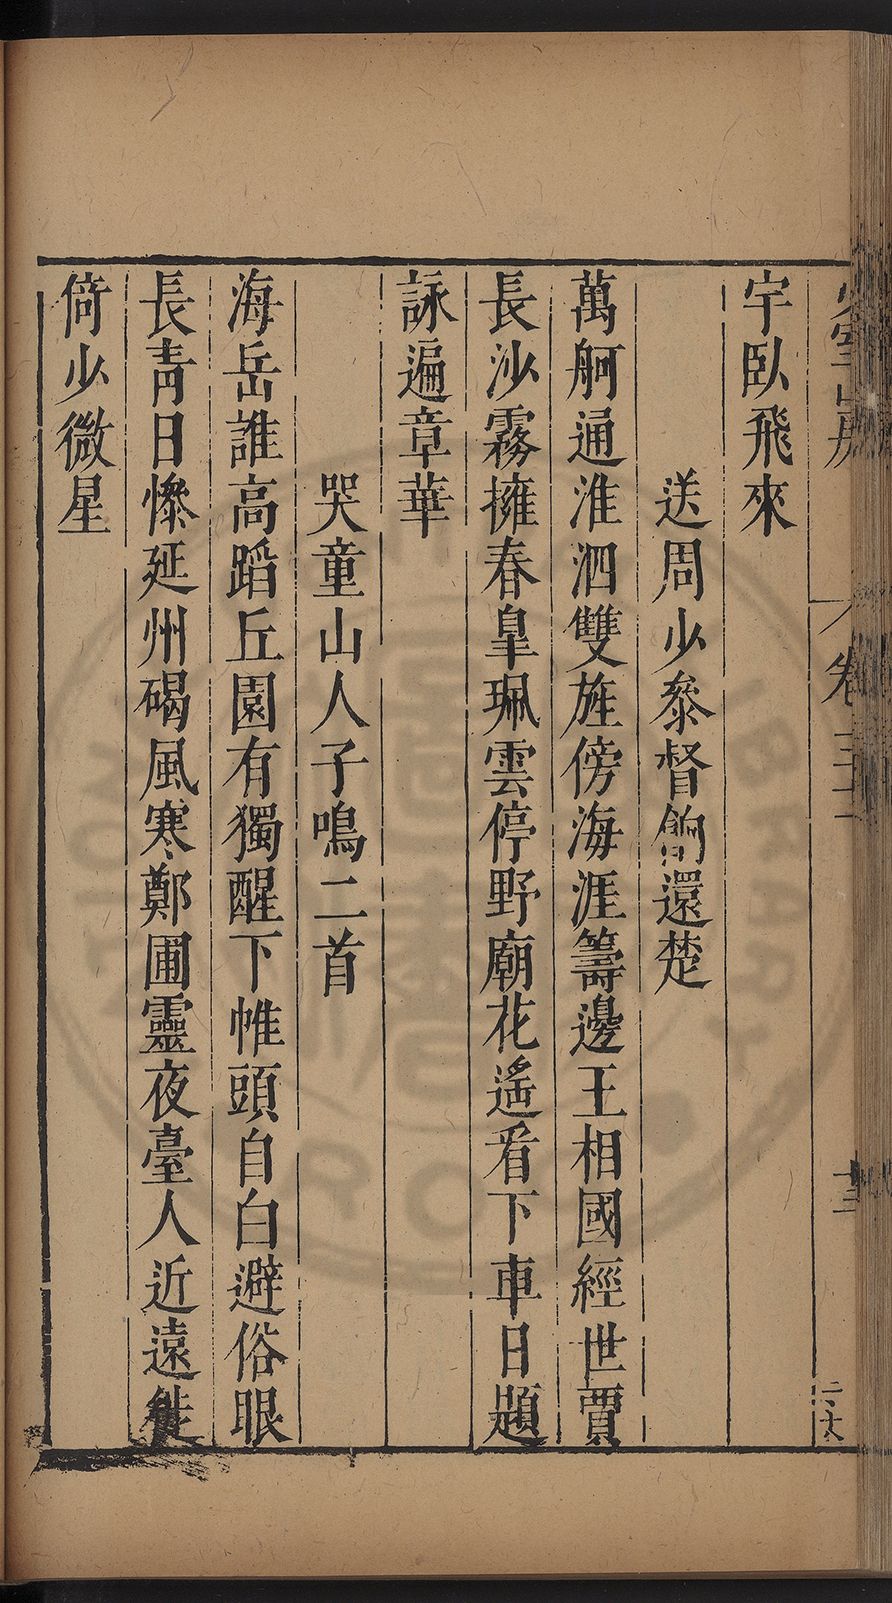 宇臥飛來
送周少叅督餉還楚
萬舸通淮泗雙旌傍海涯籌邊王相國經世賈
長沙霧擁春皐珮雲停野廟花遥看下車日題
詠遍章華
哭童山人子鳴二首
海岳誰高蹈丘園有獨醒下帷頭自白避俗眼
長青日慘延州碣風寒鄭圃靈夜臺人近遠徙
倚少微星